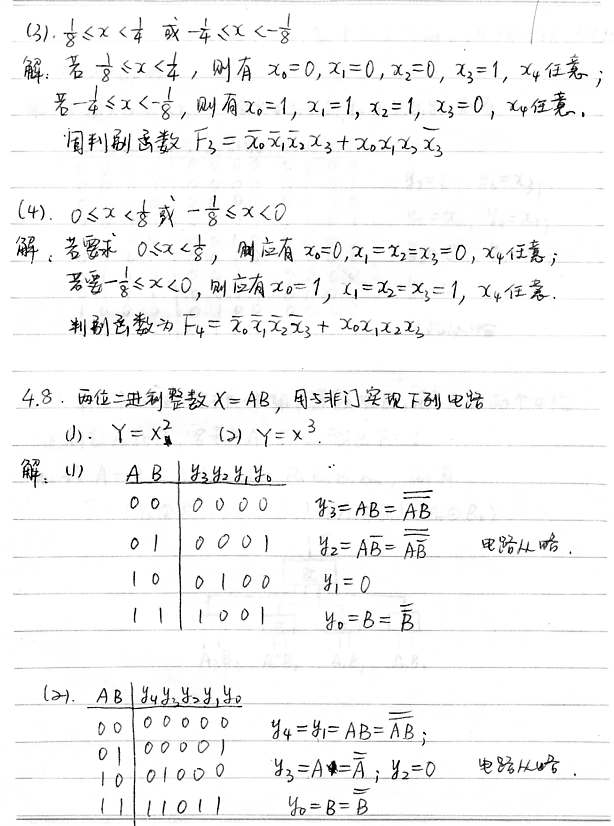 (3). 1/8 ≤ x < 1/4 或 -1/4 ≤ x < -1/8
解: 若 1/8 ≤ x < 1/4, 则有 x₀=0, x₁=0, x₂=0, x₃=1, x₄任意;
若 -1/4 ≤ x < -1/8, 则有 x₀=1, x₁=1, x₂=1, x₃=0, x₄任意.
判别函数 F₃ = x̄₀x̄₁x̄₂x₃ + x₀x₁x₂x̄₃
(4). 0 ≤ x < 1/8 或 -1/8 ≤ x < 0
解: 若要求 0 ≤ x < 1/8, 则应有 x₀=0, x₁=x₂=x₃=0, x₄任意;
若要 -1/8 ≤ x < 0, 则应有 x₀=1, x₁=x₂=x₃=1, x₄任意.
判别函数为 F₄ = x̄₀x̄₁x̄₂x̄₃ + x₀x₁x₂x₃
4.8. 两位二进制整数 X=AB, 用与非门实现下列电路
(1). Y=X² (2) Y=x³.
解: (1) A B | y₃y₂y₁y₀
0 0 | 0 0 0 0 y₃=AB=\overline{\overline{AB}}
0 1 | 0 0 0 1 y₂=AB̄=\overline{\overline{AB̄}} 电路从略.
1 0 | 0 1 0 0 y₁=0
1 1 | 1 0 0 1 y₀=B=\overline{\overline{B}}
(2). AB | y₄y₃y₂y₁y₀
00 | 0 0 0 0 0 y₄=y₁=AB=\overline{\overline{AB}};
01 | 0 0 0 0 1
10 | 0 1 0 0 0 y₃=A=\overline{\overline{A}}; y₂=0 电路从略.
11 | 1 1 0 1 1 y₀=B=\overline{\overline{B}}